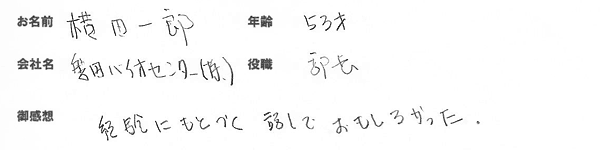 お名前 横田一郎 年齢 53才
会社名 豊田バイオセンター(株) 役職 部長
御感想 経験にもとづく 話しで おもしろかった.